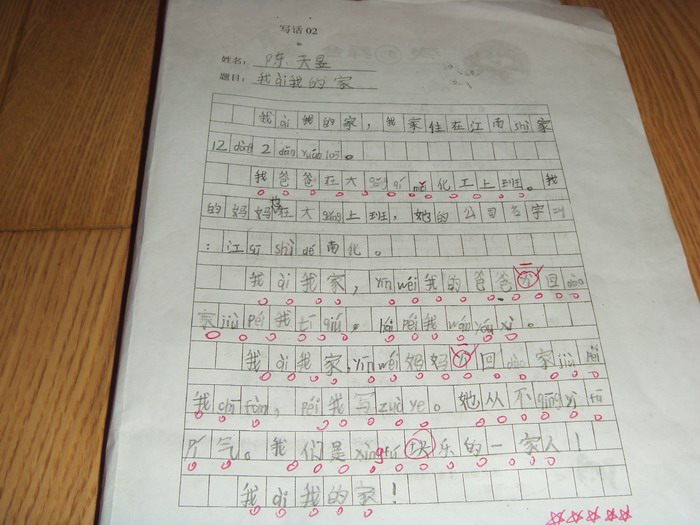 写话 02
姓名:陈天昱
题目:我ài我的家
我ài我的家,我家住在江南shì家
12 dòng 2 dān yuán 103。
我爸爸在大 化工上班。我
的妈妈在大 上班,她的公司名字叫
:江 shì dé 南化。
我ài我家,yīn wéi我的爸爸 回dào
家jiù péi我tī qiú。hái péi我wán yóu xì。
我ài我家,yīn wéi妈妈 回dào家jiù péi
我chī fàn,péi我写zuò ye。她从不qīng yì fā
pí气。我们是xìng fú快乐的一家人!
我ài我的家!